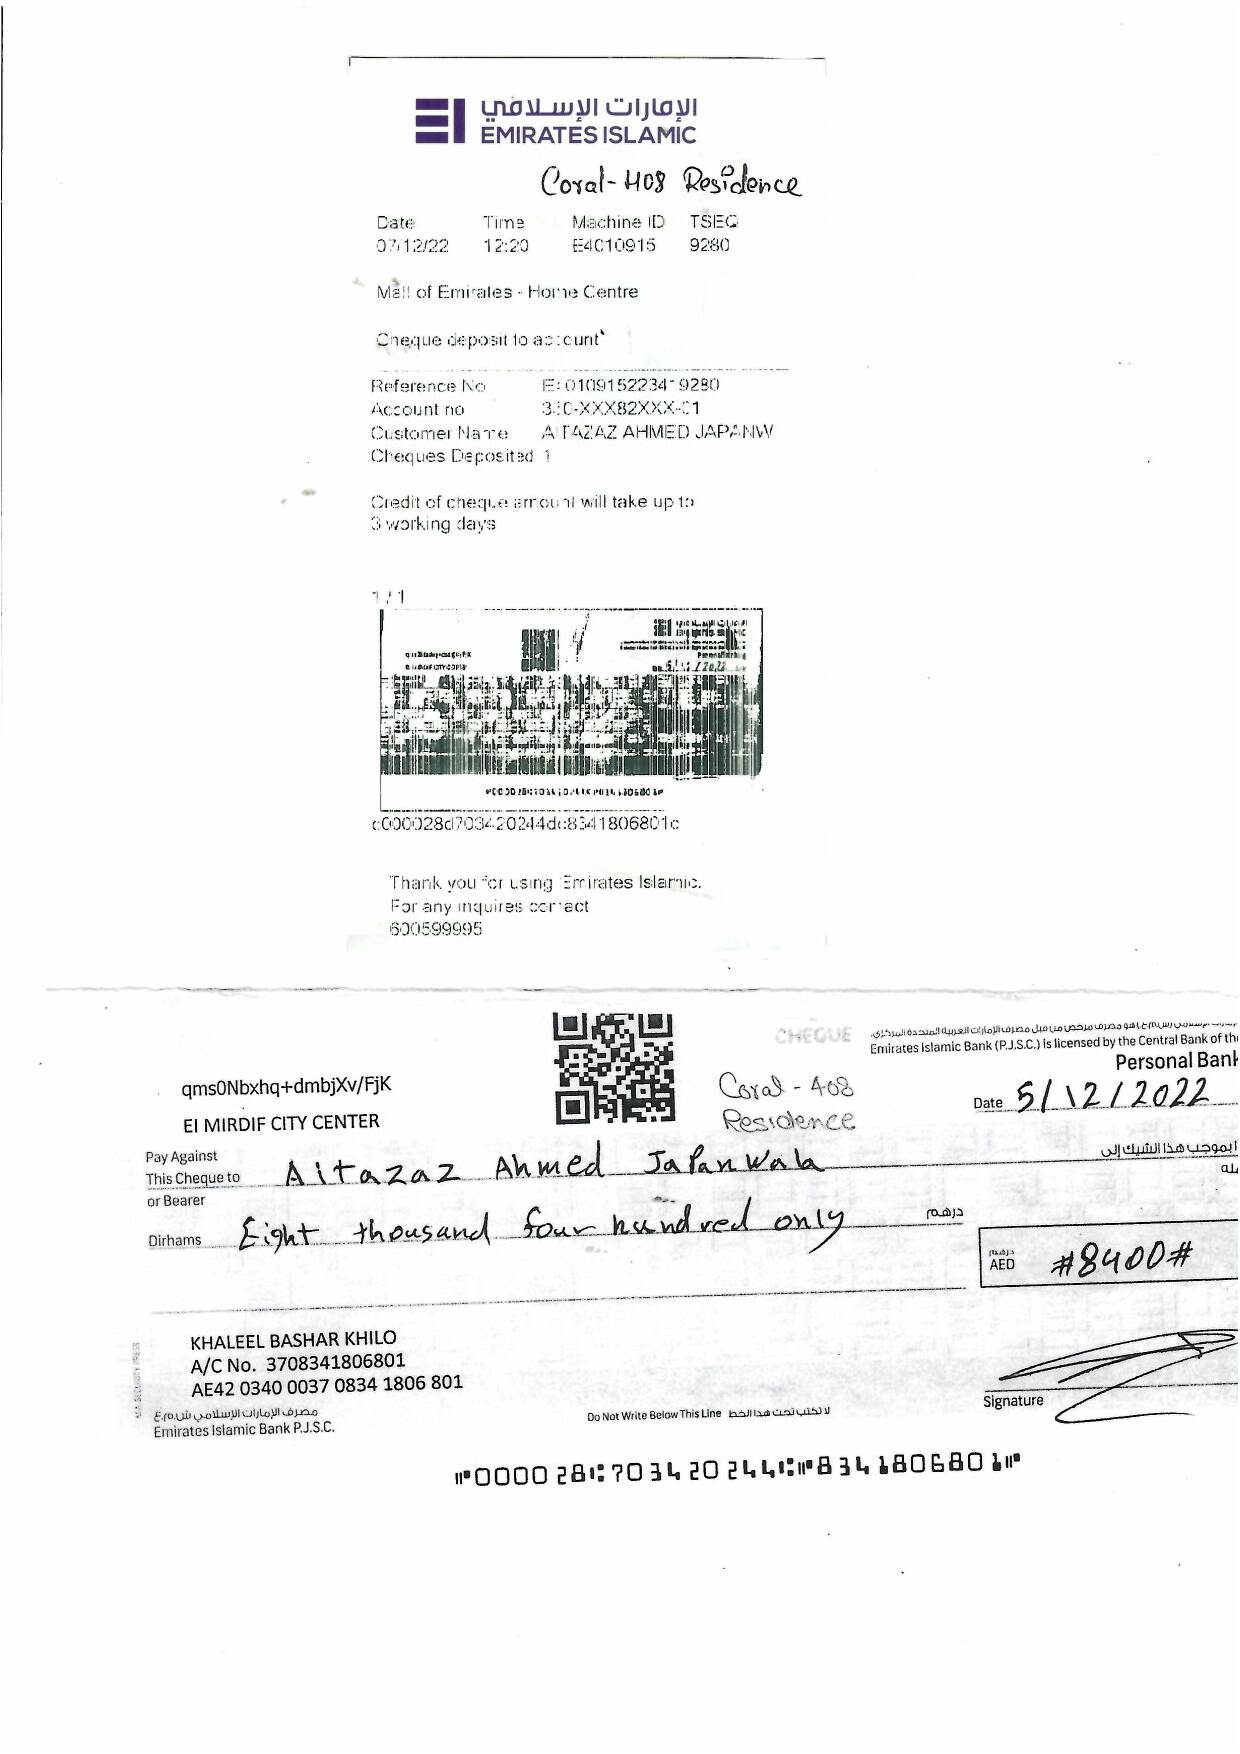 الإمارات الإسلامي
EMIRATES ISLAMIC
Coral-408 Residence
Date Time Machine ID TSEQ
07/12/22 12:20 E4C10915 9280
Mall of Emirates - Home Centre
Cheque deposit to account
Reference No
Account no
Customer Name A TAZAZ AHMED JAPANW
Cheques Deposited 1
Credit of cheque amount will take up to
3 working days
1 / 1
Thank you for using Emirates Islamic.
For any inquires contact
600599995
CHEQUE
Emirates Islamic Bank (P.J.S.C.) is licensed by the Central Bank of the
Personal Bank
qms0Nbxhq+dmbjXv/FjK
EI MIRDIF CITY CENTER
Coral - 408
Residence
Date 5/12/2022
Pay Against
This Cheque to Aitazaz Ahmed Japanwala
بموجب هذا الشيك إلى
or Bearer
Dirhams Eight thousand four hundred only درهم
درهم
AED #8400#
KHALEEL BASHAR KHILO
A/C No. 3708341806801
AE42 0340 0037 0834 1806 801
مصرف الإمارات الإسلامي ش.م.ع
Emirates Islamic Bank P.J.S.C.
Do Not Write Below This Line لا تكتب تحت هذا الخط
Signature
⑈000028⑆703420244⑆⑈8341806801⑈